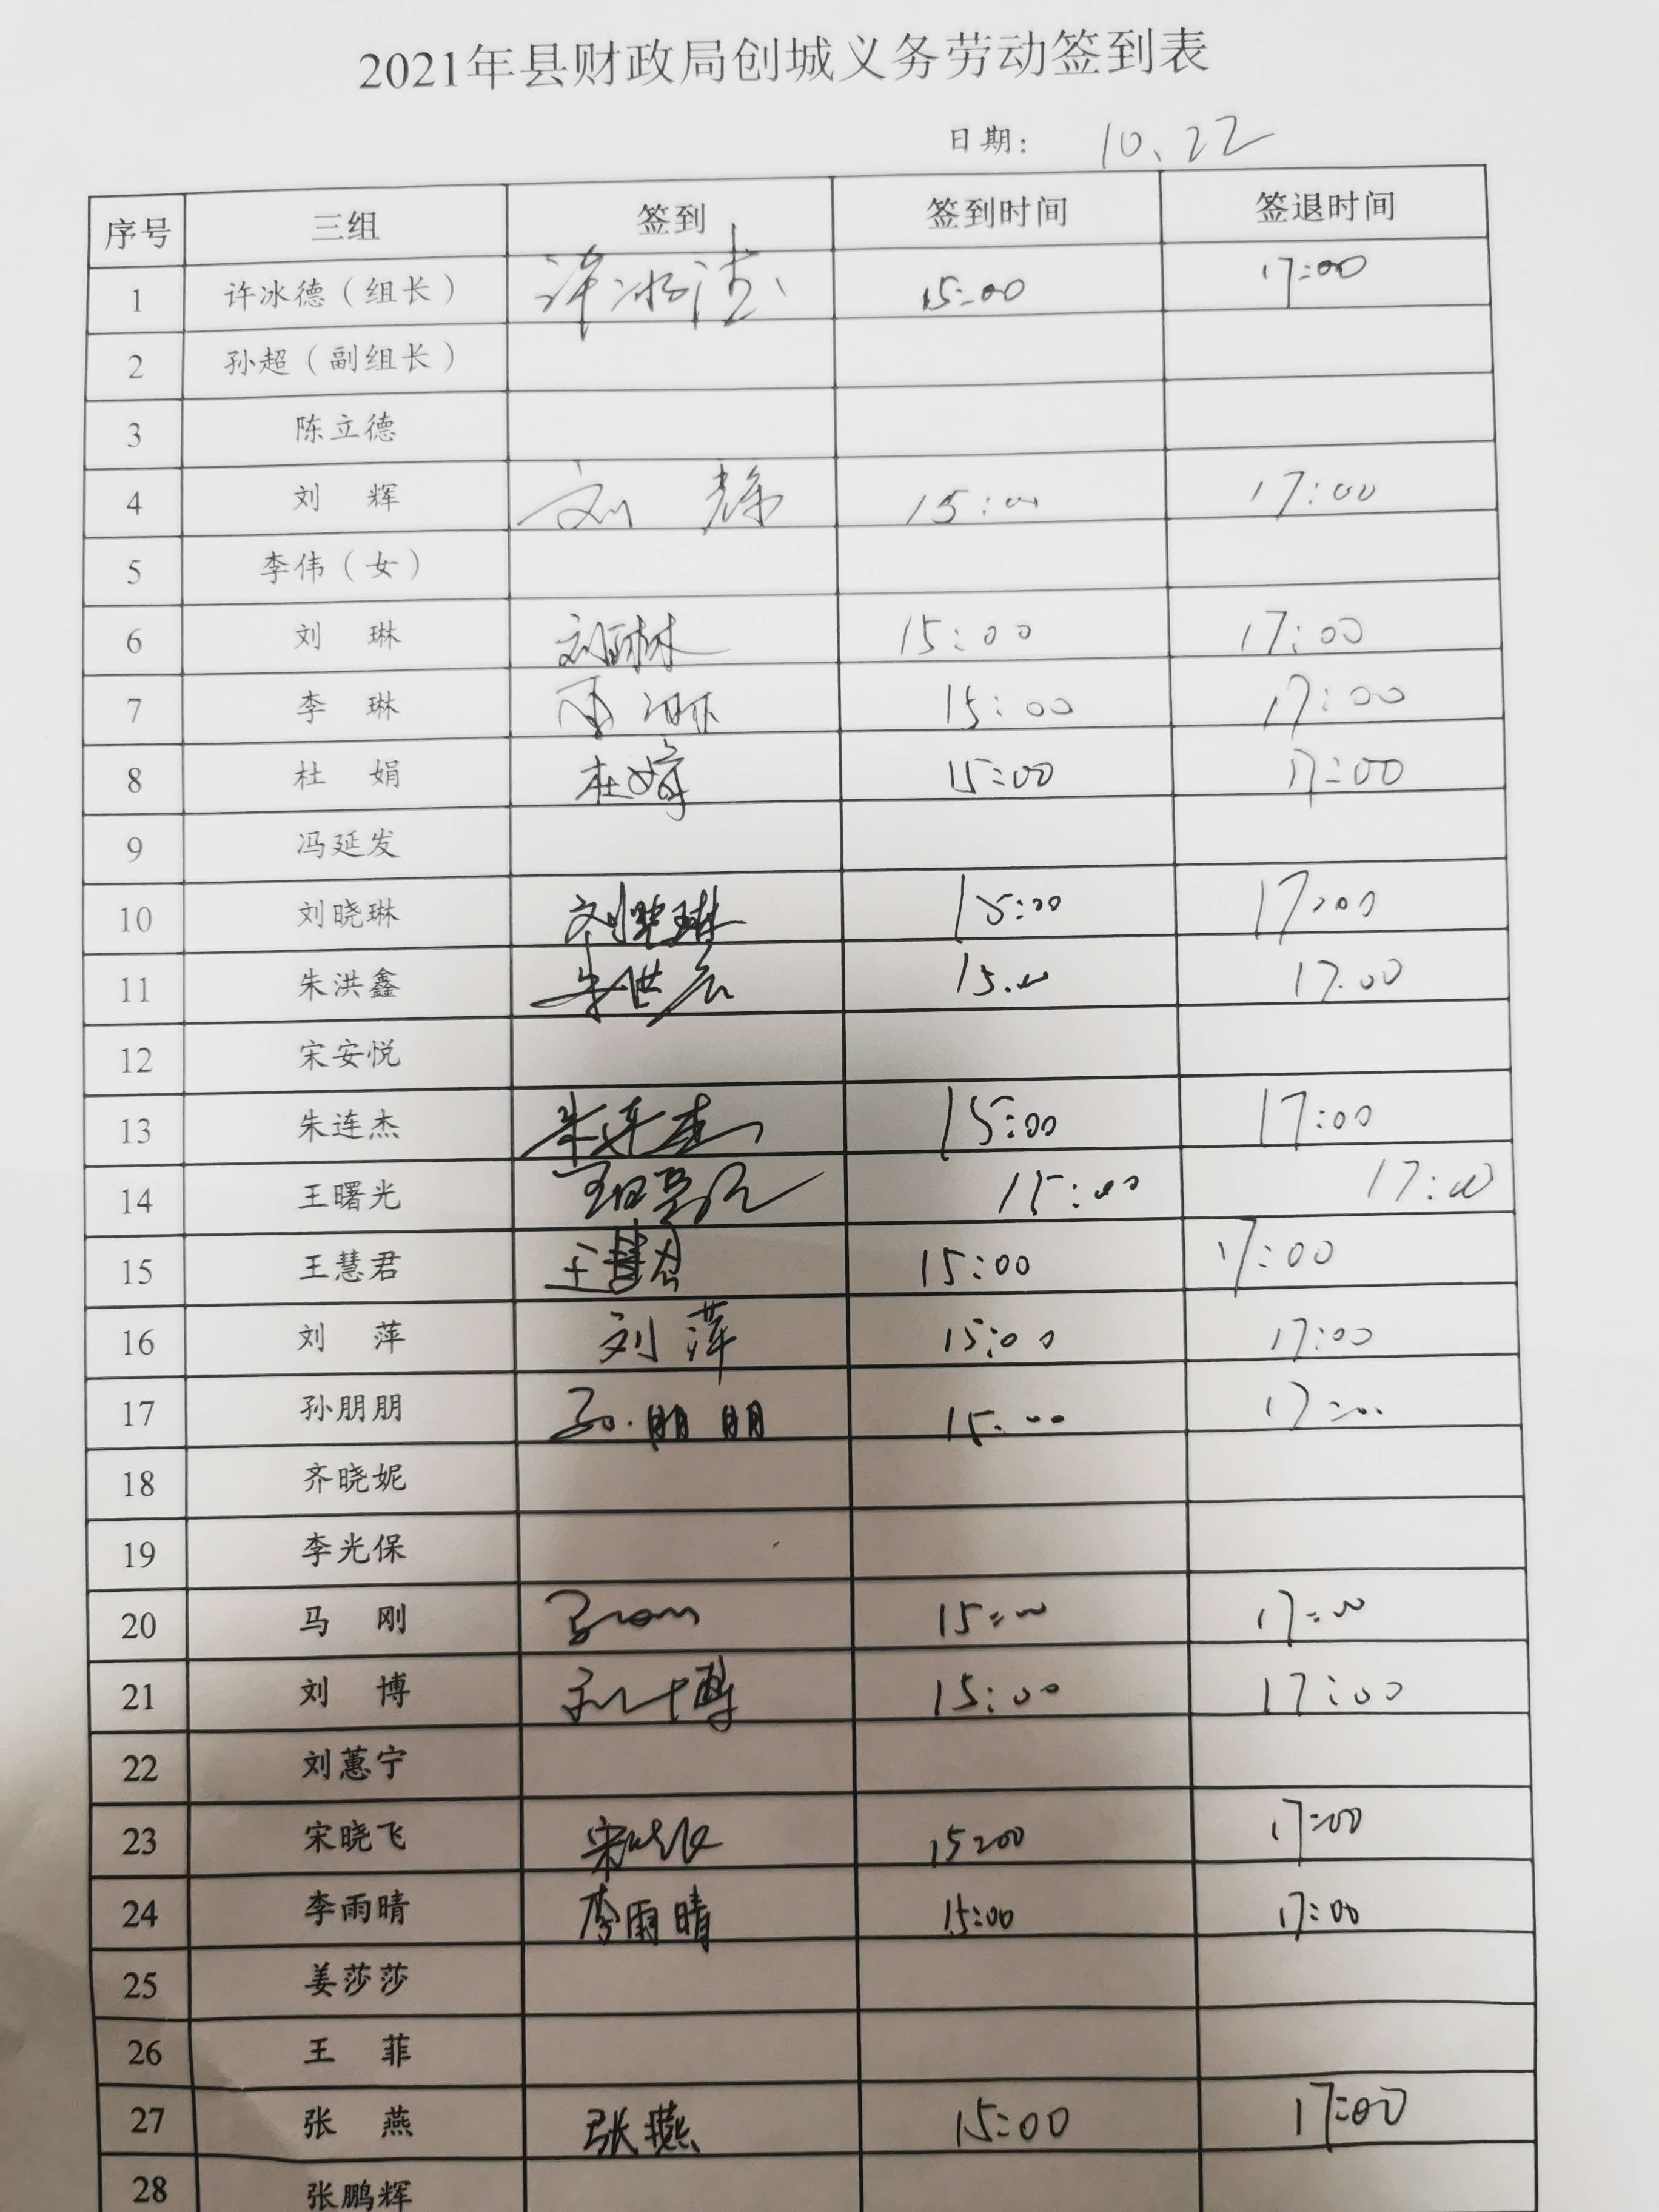 2021年县财政局创城义务劳动签到表
日期： 10.22
序号 三组 签到 签到时间 签退时间
1 许冰德（组长） 许冰德 15:00 17:00
2 孙超（副组长）
3 陈立德
4 刘 辉 刘 辉 15:00 17:00
5 李伟（女）
6 刘 琳 刘琳 15:00 17:00
7 李 琳 15:00 17:00
8 杜 娟 杜娟 15:00 17:00
9 冯延发
10 刘晓琳 刘晓琳 15:00 17:00
11 朱洪鑫 朱洪鑫 15.00 17.00
12 宋安悦
13 朱连杰 朱连杰 15:00 17:00
14 王曙光 王曙光 15:00 17:00
15 王慧君 王慧君 15:00 17:00
16 刘 萍 刘 萍 15:00 17:00
17 孙朋朋 孙朋朋 15:00 17:00
18 齐晓妮
19 李光保
20 马 刚 马刚 15:00 17:00
21 刘 博 刘博 15:00 17:00
22 刘蕙宁
23 宋晓飞 宋晓飞 15:00 17:00
24 李雨晴 李雨晴 15:00 17:00
25 姜莎莎
26 王 菲
27 张 燕 张燕 15:00 17:00
28 张鹏辉